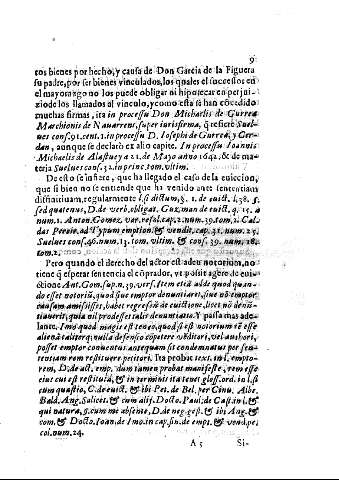 9
tos bienes por hecho, y causa de Don Garcia de la Figuera
su padre, por ser bienes vinculados, los quales el successor en
el mayorazgo no los puede obligar ni hipotecar en perjui-
zio de los llamados al vinculo, y como esta se han cõcedido
muchas firmas, ita in processu Don Michaelis de Gurrea
Marchionis de Nauarrens, super iurisfirma, q̃ refiere Suel-
ues cons. 91. cent. 1. in processu D. Iosephi de Gurrea, y Cer-
dan, aunque se declarò ex alio capite. In processu Ioannis
Michaelis de Alastuey a 21. de Mayo año 1642. & de ma-
teria Suelues cons. 32. in princ. tom. 2.
De esto se infiere, que ha llegado el caso de la euiccion,
que si bien no se entiende que ha venido ante sententiam
diffinitiuam, regulariter l. si dictum 56. §. 1. de euict. l. 38. §.
sed quatenus, D. de verb. obligat. Guzman de euict. q. 15. a
num. 1. Anton. Gomez var. resol. cap. 2. num. 39. tom. 2. Cal-
das Pereir. ad Typum emption. & vendit. cap. 31. num. 25.
Suelues cons. 46. num. 13. tom. vltim. & cons. 39. num. 28.
tom. 2.
Pero quando el derecho del actor est adeu notorium, no
tiene q̃ esperar sentencia el cõprador, vt possit agere de eui-
ctione Ant. Gom. sup. n. 39. vers. Item etiã adde quod quan-
do esset notoriũ, quod sine emptor denuntiaret, siue nõ emptor
causam amisisset, habet regressũ de euictione, licet nõ denũ-
tiauerit, quia nil prodesset talis denuntiatio. Y passa mas ade-
lante. Imo quod magis est teneo, quod si est notorium rẽ esse
alienã taliter q̃ nulla defensio copetere vẽditori, vel authori,
posset emptor conueniri antequam sit condemnatus per sen-
tentiam rem restituere petitori. Ita probat text. in l. empto-
rem, D. de act. emp. dum tamen probat manifeste, rem esse
eius cui est restituta, & in terminis ita tenet gloss. ord. in l. si
cum quæstio, C. de euict. & ibi Pet. de Bel. per Cinu. Albe.
Bald. Ang. Salicet. & cum alij. Docto. Paul. de Castan l. &
qui natura, §. cum me absente, D. de neg. gest. & ibi Ang. &
com. & Docto. Ioan. de Imo. in cap. fin. de empt. & vend. pe.
col. num. 24.
A 5 Si-